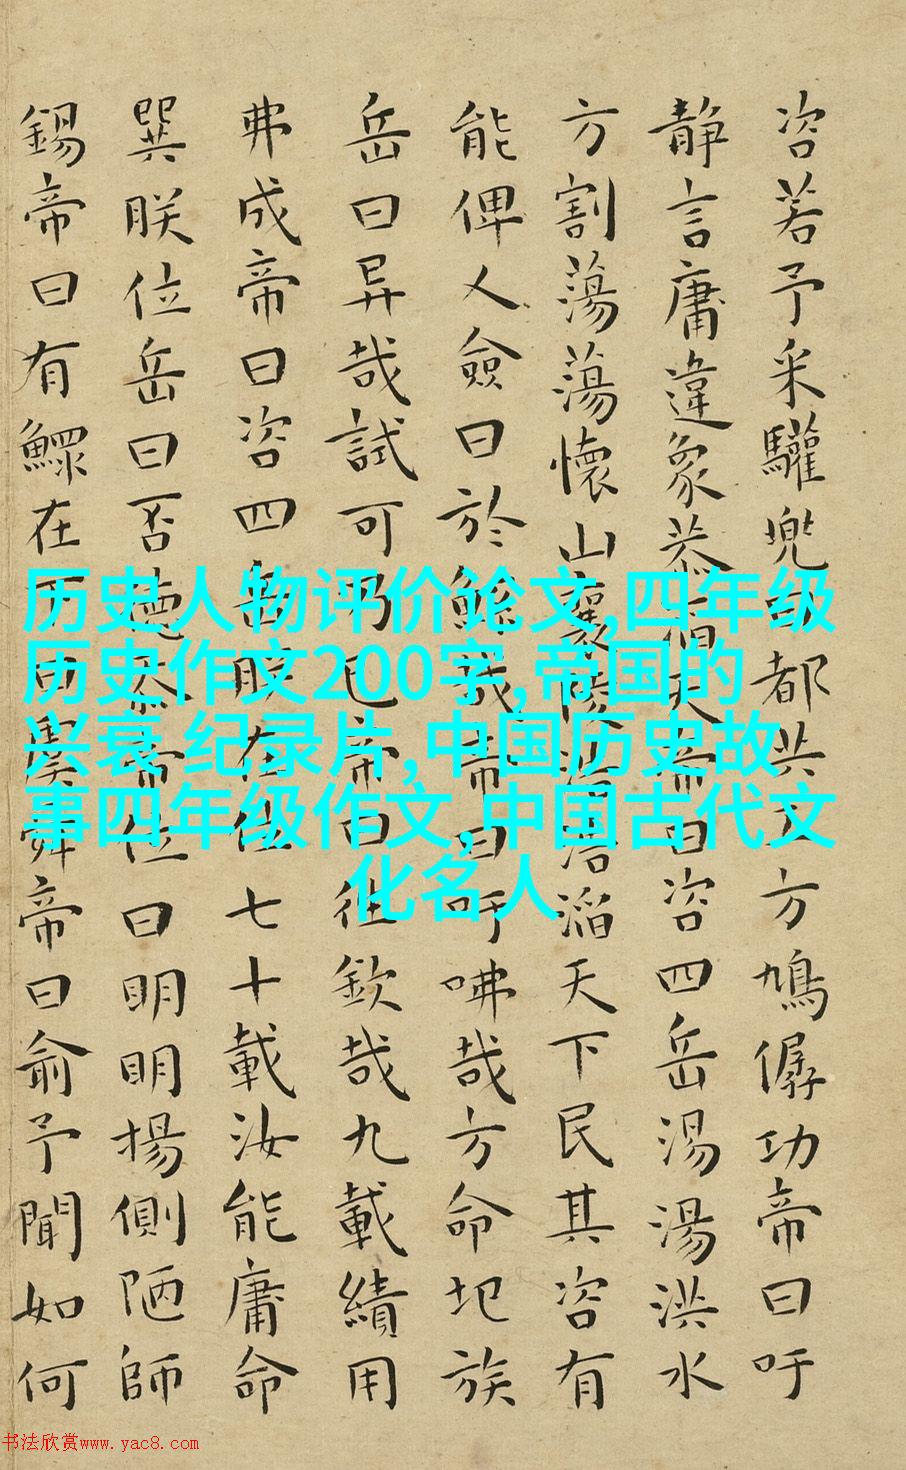 咨若予采驩兜曰都共工方鳩僝功帝曰吁
静言庸違象恭滔天帝曰咨四岳湯湯洪水
方割蕩蕩懷山襄陵浩浩滔天下民其咨有
能俾乂僉曰於鯀哉帝曰吁咈哉方命圮族
岳曰异哉試可乃已帝曰往欽哉九載績用
弗成帝曰咨四岳朕在位七十載汝能庸命
巽朕位岳曰否德忝帝位曰明明揚側陋師
錫帝曰有鰥在下曰虞舜帝曰俞予聞如何
历史人物评价论文,四年级
历史作文200字,帝国的
兴衰 纪录片,中国历史故
事四年级作文,中国古代文
化名人
书法欣赏www.yac8.com